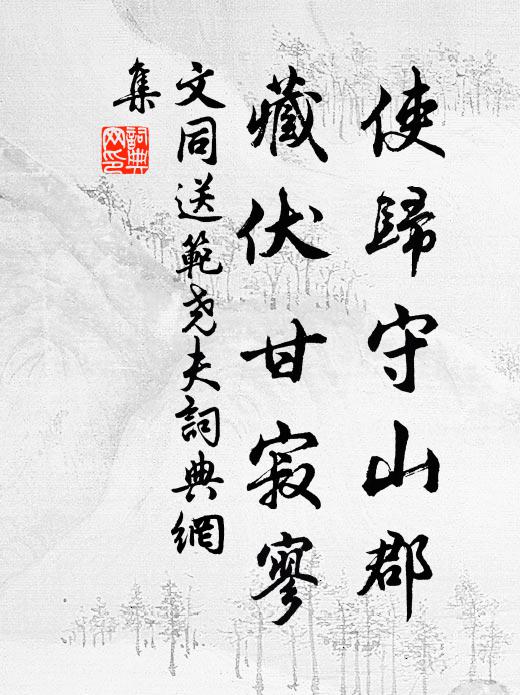 使歸守山郡
藏伏甘寂寥
文同送範堯夫詞典網
集
詞典网印